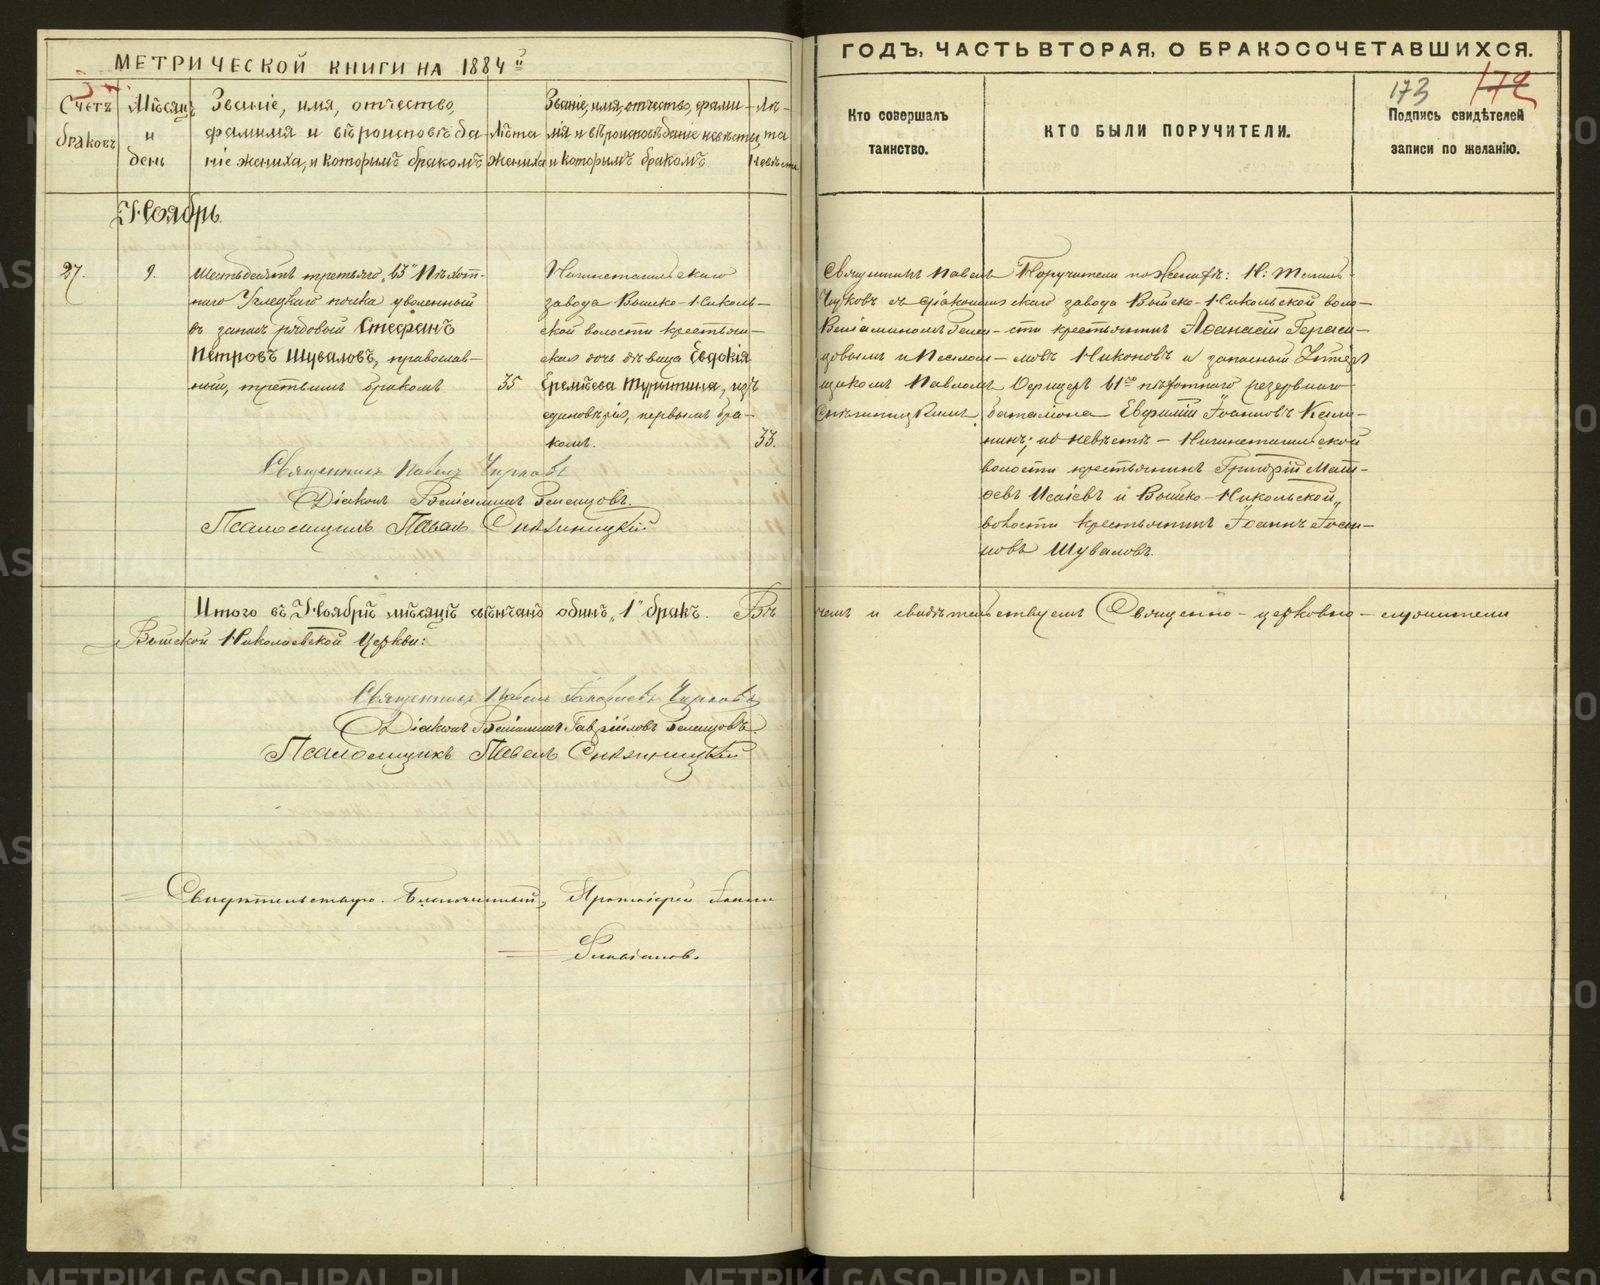 МЕТРИЧЕСКОЙ КНИГИ НА 1884й
ГОДЪ, ЧАСТЬ ВТОРАЯ, О БРАКОСОЧЕТАВШИХСЯ.
173 172
Счетъ браковъ
Мѣсяцъ и день
Званіе, имя, отчество,
фамилія и вѣроисповѣда-
ніе жениха, и которымъ бракомъ
Лѣта жениха
Званіе, имя, отчество, фами-
лія и вѣроисповѣданіе невѣсты
и которымъ бракомъ
Лѣ-
та
невѣсты
Кто совершалъ
таинство.
КТО БЫЛИ ПОРУЧИТЕЛИ.
Подпись свидѣтелей
записи по желанію.
Ноябрь.
27.
9.
Шестьдесятъ третьяго „63" Пѣхот-
наго Углецкаго полка уволенный
въ запасъ рядовой Стефанъ
Петровъ Шуваловъ, православ-
ный, третьимъ бракомъ
35
Нижнетагильскаго
завода Выйско-Николь-
ской волости крестьян-
ская дочь дѣвица Евдокія
Еремѣева, изъ
единовѣрія, первымъ бра-
комъ.
33.
Священникъ Павелъ
Чирковъ съ діакономъ
ВеніаминомъЗемля-
и Псалом-
щикомъ Павломъ
Поручители по женихѣ: Н: Тагиль-
скаго завода Выйско-Никольской воло-
сти крестьянинъ Аѳанасій Гераси-
мовъ Никоновъ и запасный Унтеръ
Офицеръ 61го пѣхотнаго резервнаго
баталіона Евфимій Іоанновъ Кали-
нинъ; по невѣстѣ – Нижнетагильской
волости крестьянинъ Григорій Мат-
ѳевъ Исаіевъ и Выйско-Никольской
волости крестьянинъ Іоаннъ Іоан-
новъ Шуваловъ.
Священникъ Павелъ Чирковъ
Діаконъ Веніаминъ
Псаломщикъ Павелъ
Итого въ Ноябрѣ мѣсяцѣ вѣнчанъ одинъ „1" бракъ. Въ чемъ и свидѣтельствуемъ Священно-церковно-служители
Выйской Николаевской Церкви:
Священникъ Павелъ Чирковъ
Діаконъ Веніаминъ Гавріиловъ
Псаломщикъ Павелъ
Свидѣтельствую. Благочинный, Протоіерей Іоаннъ
Флавіановъ.
METRIKI.GASO-URAL.RU